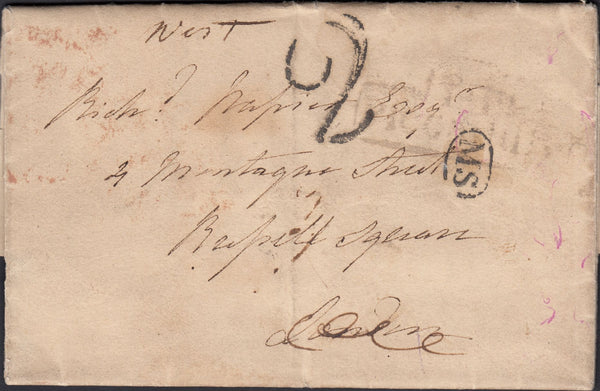 West
2
Richd Napier Esqr
MS
4 Montague Street
Russell Square
London